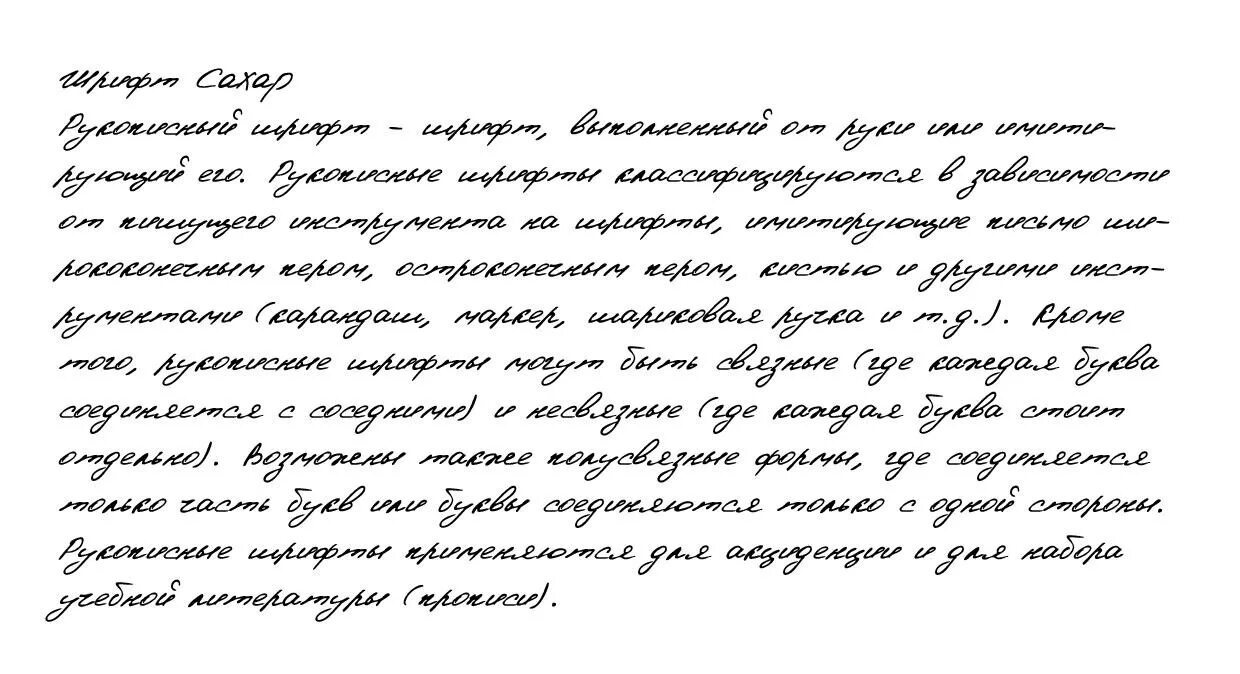 Шрифт Сахар
Рукописный шрифт - шрифт, выполненный от руки или имити-
рующий его. Рукописные шрифты классифицируются в зависимости
от пишущего инструмента на шрифты, имитирующие письмо ши-
рококонечным пером, остроконечным пером, кистью и другими инст-
рументами (карандаш, маркер, шариковая ручка и т.д.). Кроме
того, рукописные шрифты могут быть связные (где каждая буква
соединяется с соседними) и несвязные (где каждая буква стоит
отдельно). Возможены также полусвязные формы, где соединяется
только часть букв или буквы соединяются только с одной стороны.
Рукописные шрифты применяются для акциденции и для набора
учебной литературы (прописи).